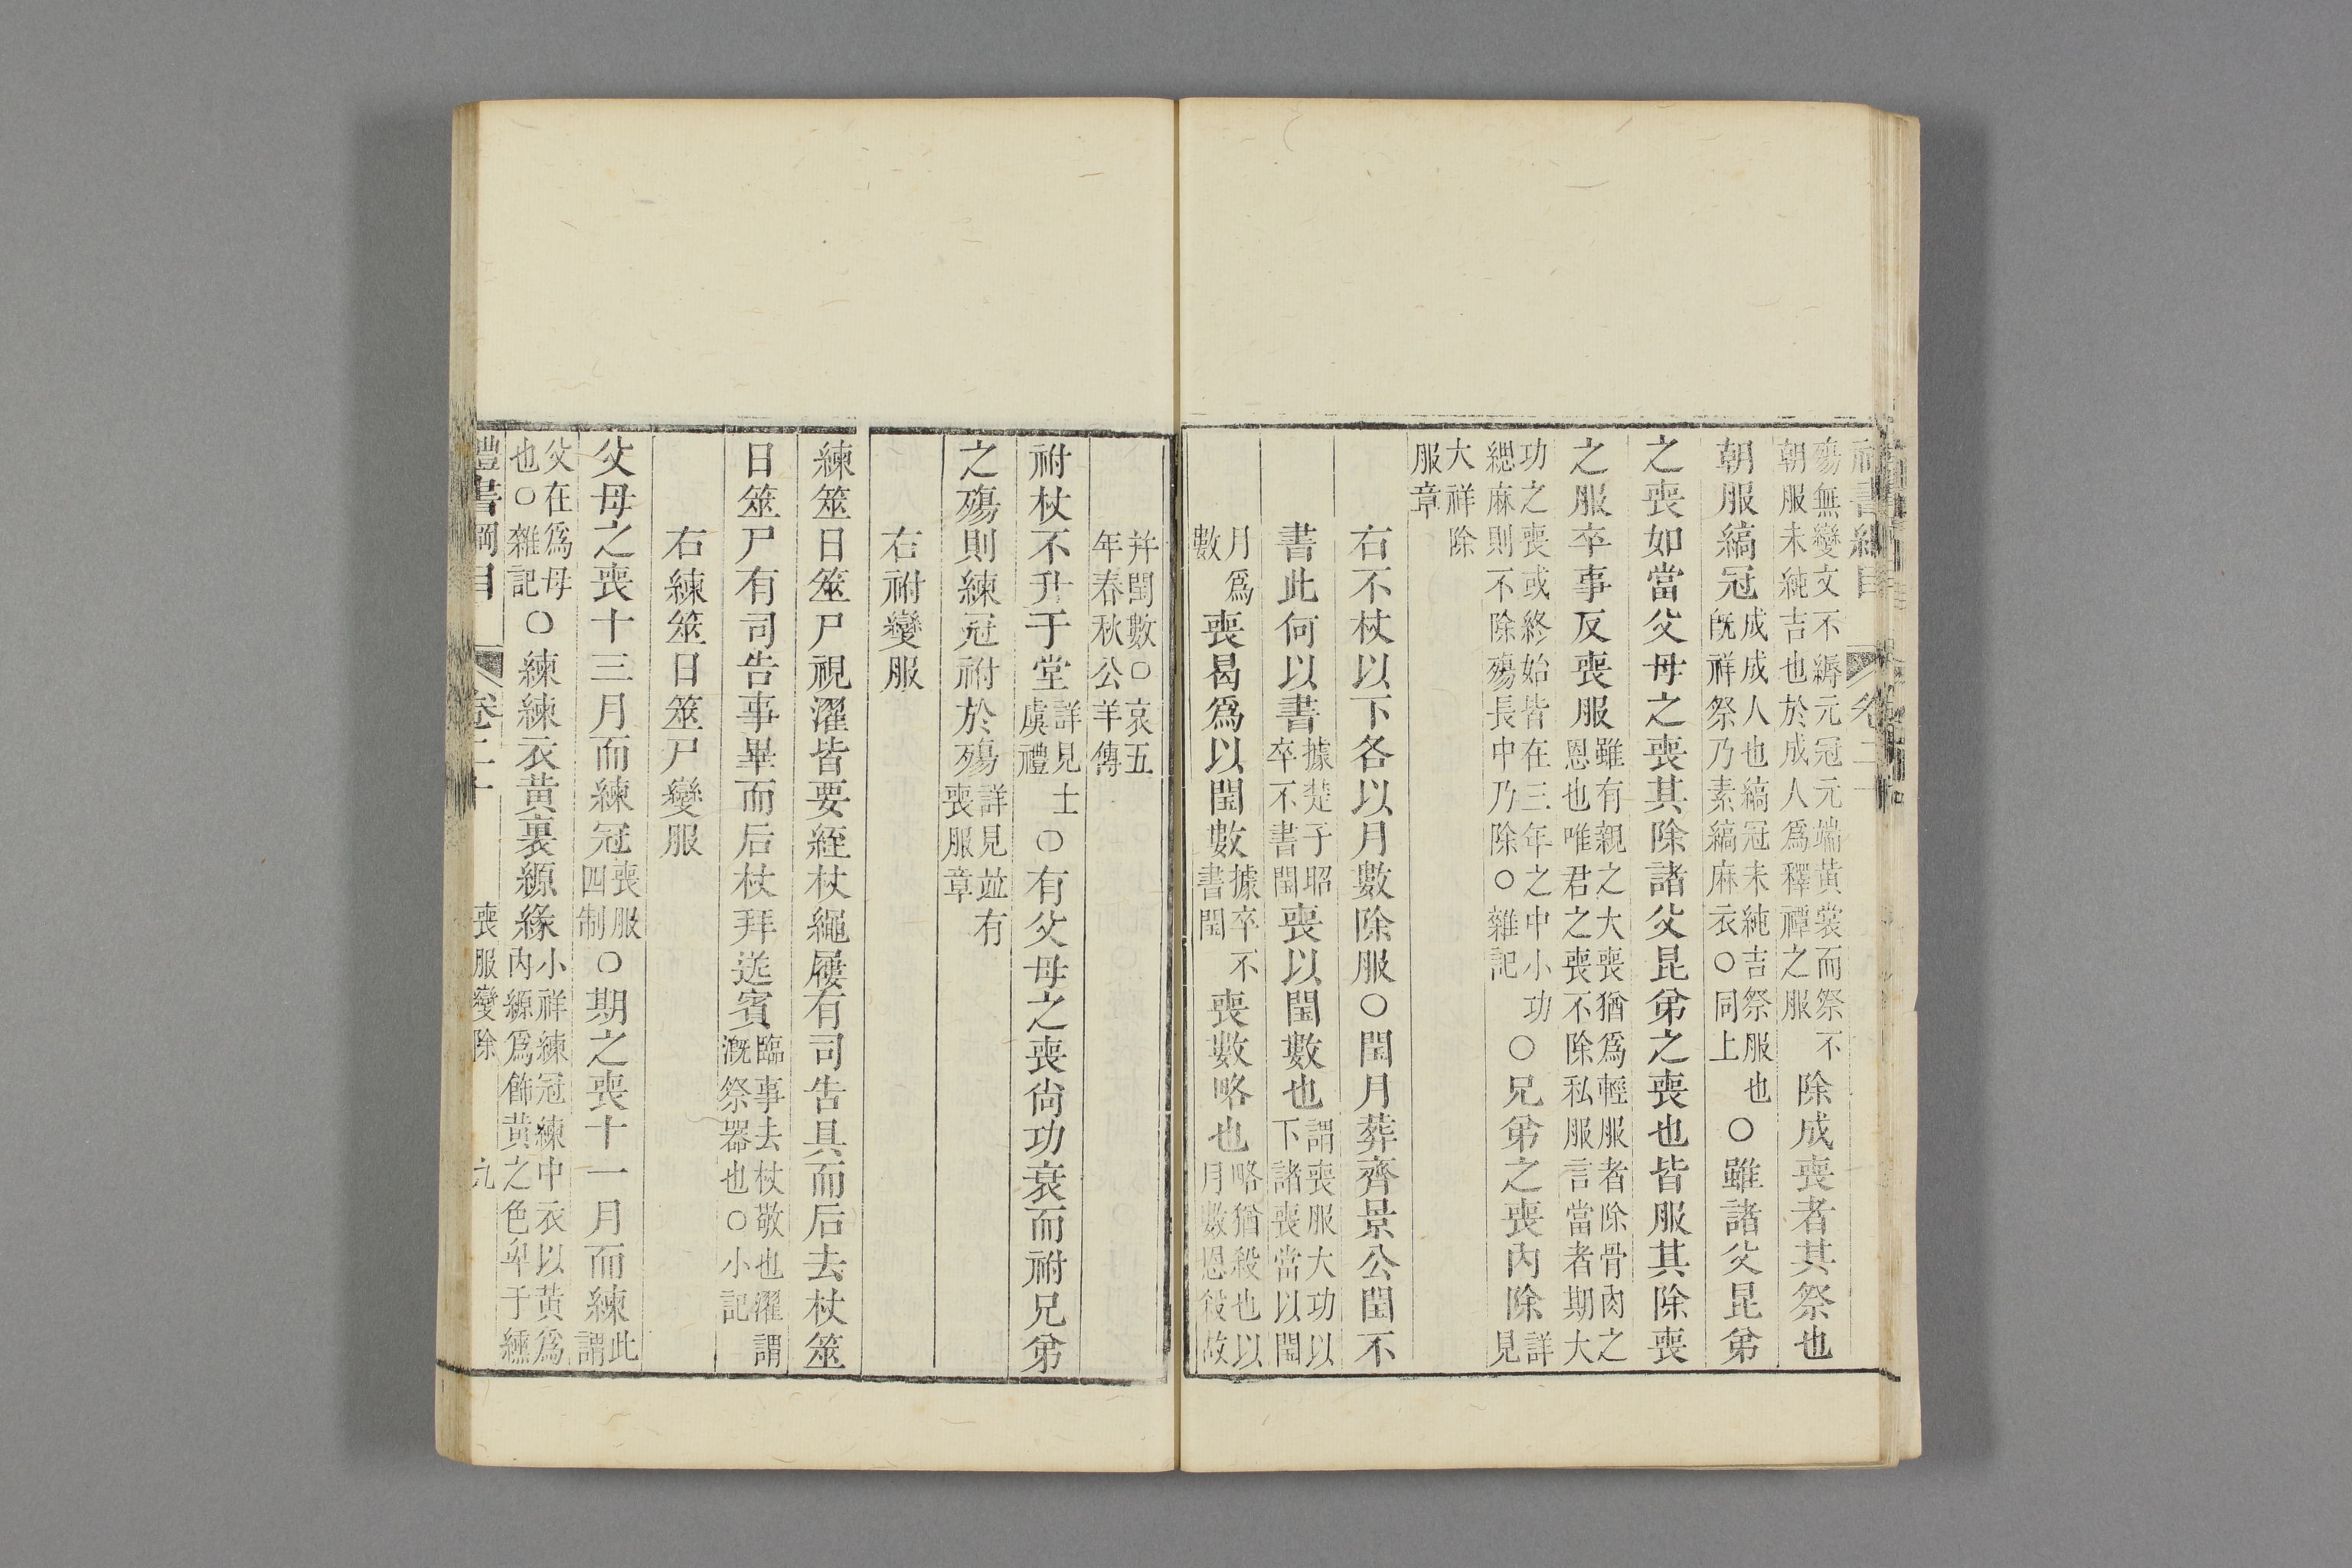 殤無變文不縟元冠元端黃裳而祭不
朝服未純吉也於成人爲釋禫之服
除成喪者其祭也
朝服縞冠
成成人也縞冠未純吉祭服也
旣祥祭乃素縞麻衣○同上
○雖諸父昆弟
之喪如當父母之喪其除諸父昆弟之喪也皆服其除喪
之服卒事反喪服
雖有親之大喪猶爲輕服者除骨肉之
恩也唯君之喪不除私服言當者期大
功之喪或終始皆在三年之中小功
緦麻則不除殤長中乃除○雜記
○兄弟之喪內除
詳見
大祥除
服章
右不杖以下各以月數除服○閏月葬齊景公閏不
書此何以書
據楚子昭
卒不書閏
喪以閏數也
謂喪服大功以
下諸喪當以閏
月爲
數
喪曷爲以閏數
據卒不
書閏
喪數略也
略猶殺也以
月數恩殺故
幷閏數○哀五
年春秋公羊傳
祔杖不升于堂
詳見士
虞禮
○有父母之喪尙功衰而祔兄弟
之殤則練冠祔於殤
詳見並有
喪服章
右祔變服
練筮日筮尸視濯皆要絰杖繩屨有司告具而后去杖筮
日筮尸有司告事畢而后杖拜送賓
臨事去杖敬也濯謂
溉祭器也○小記
右練筮日筮尸變服
父母之喪十三月而練冠
喪服
四制
○期之喪十一月而練
此謂
父在爲母
也○雜記
○練練衣黃裏縓緣
小祥練冠練中衣以黃爲
內縓爲飾黃之色卑于纁
禮書綱目
卷二十
喪服變除
九